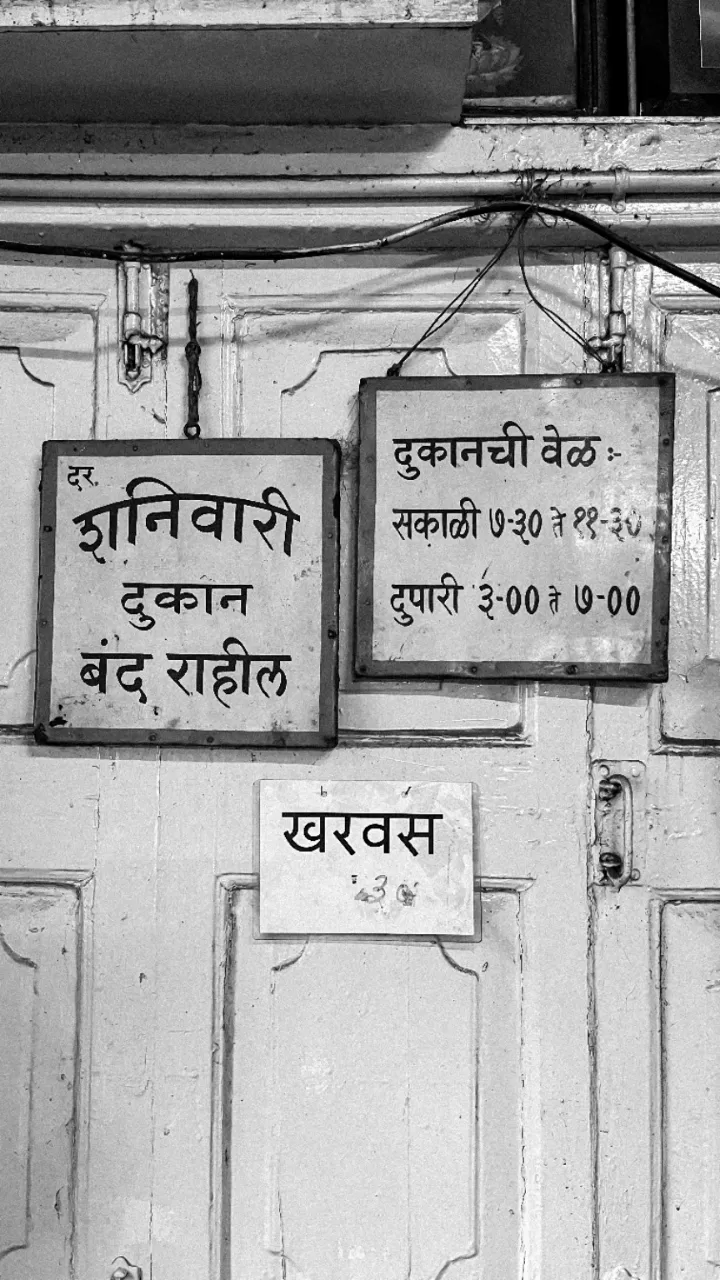 दर.
शनिवारी
दुकान
बंद राहील
दुकानची वेळ :-
सकाळी ७-३० ते ११-३०
दुपारी ३-०० ते ७-००
खरवस